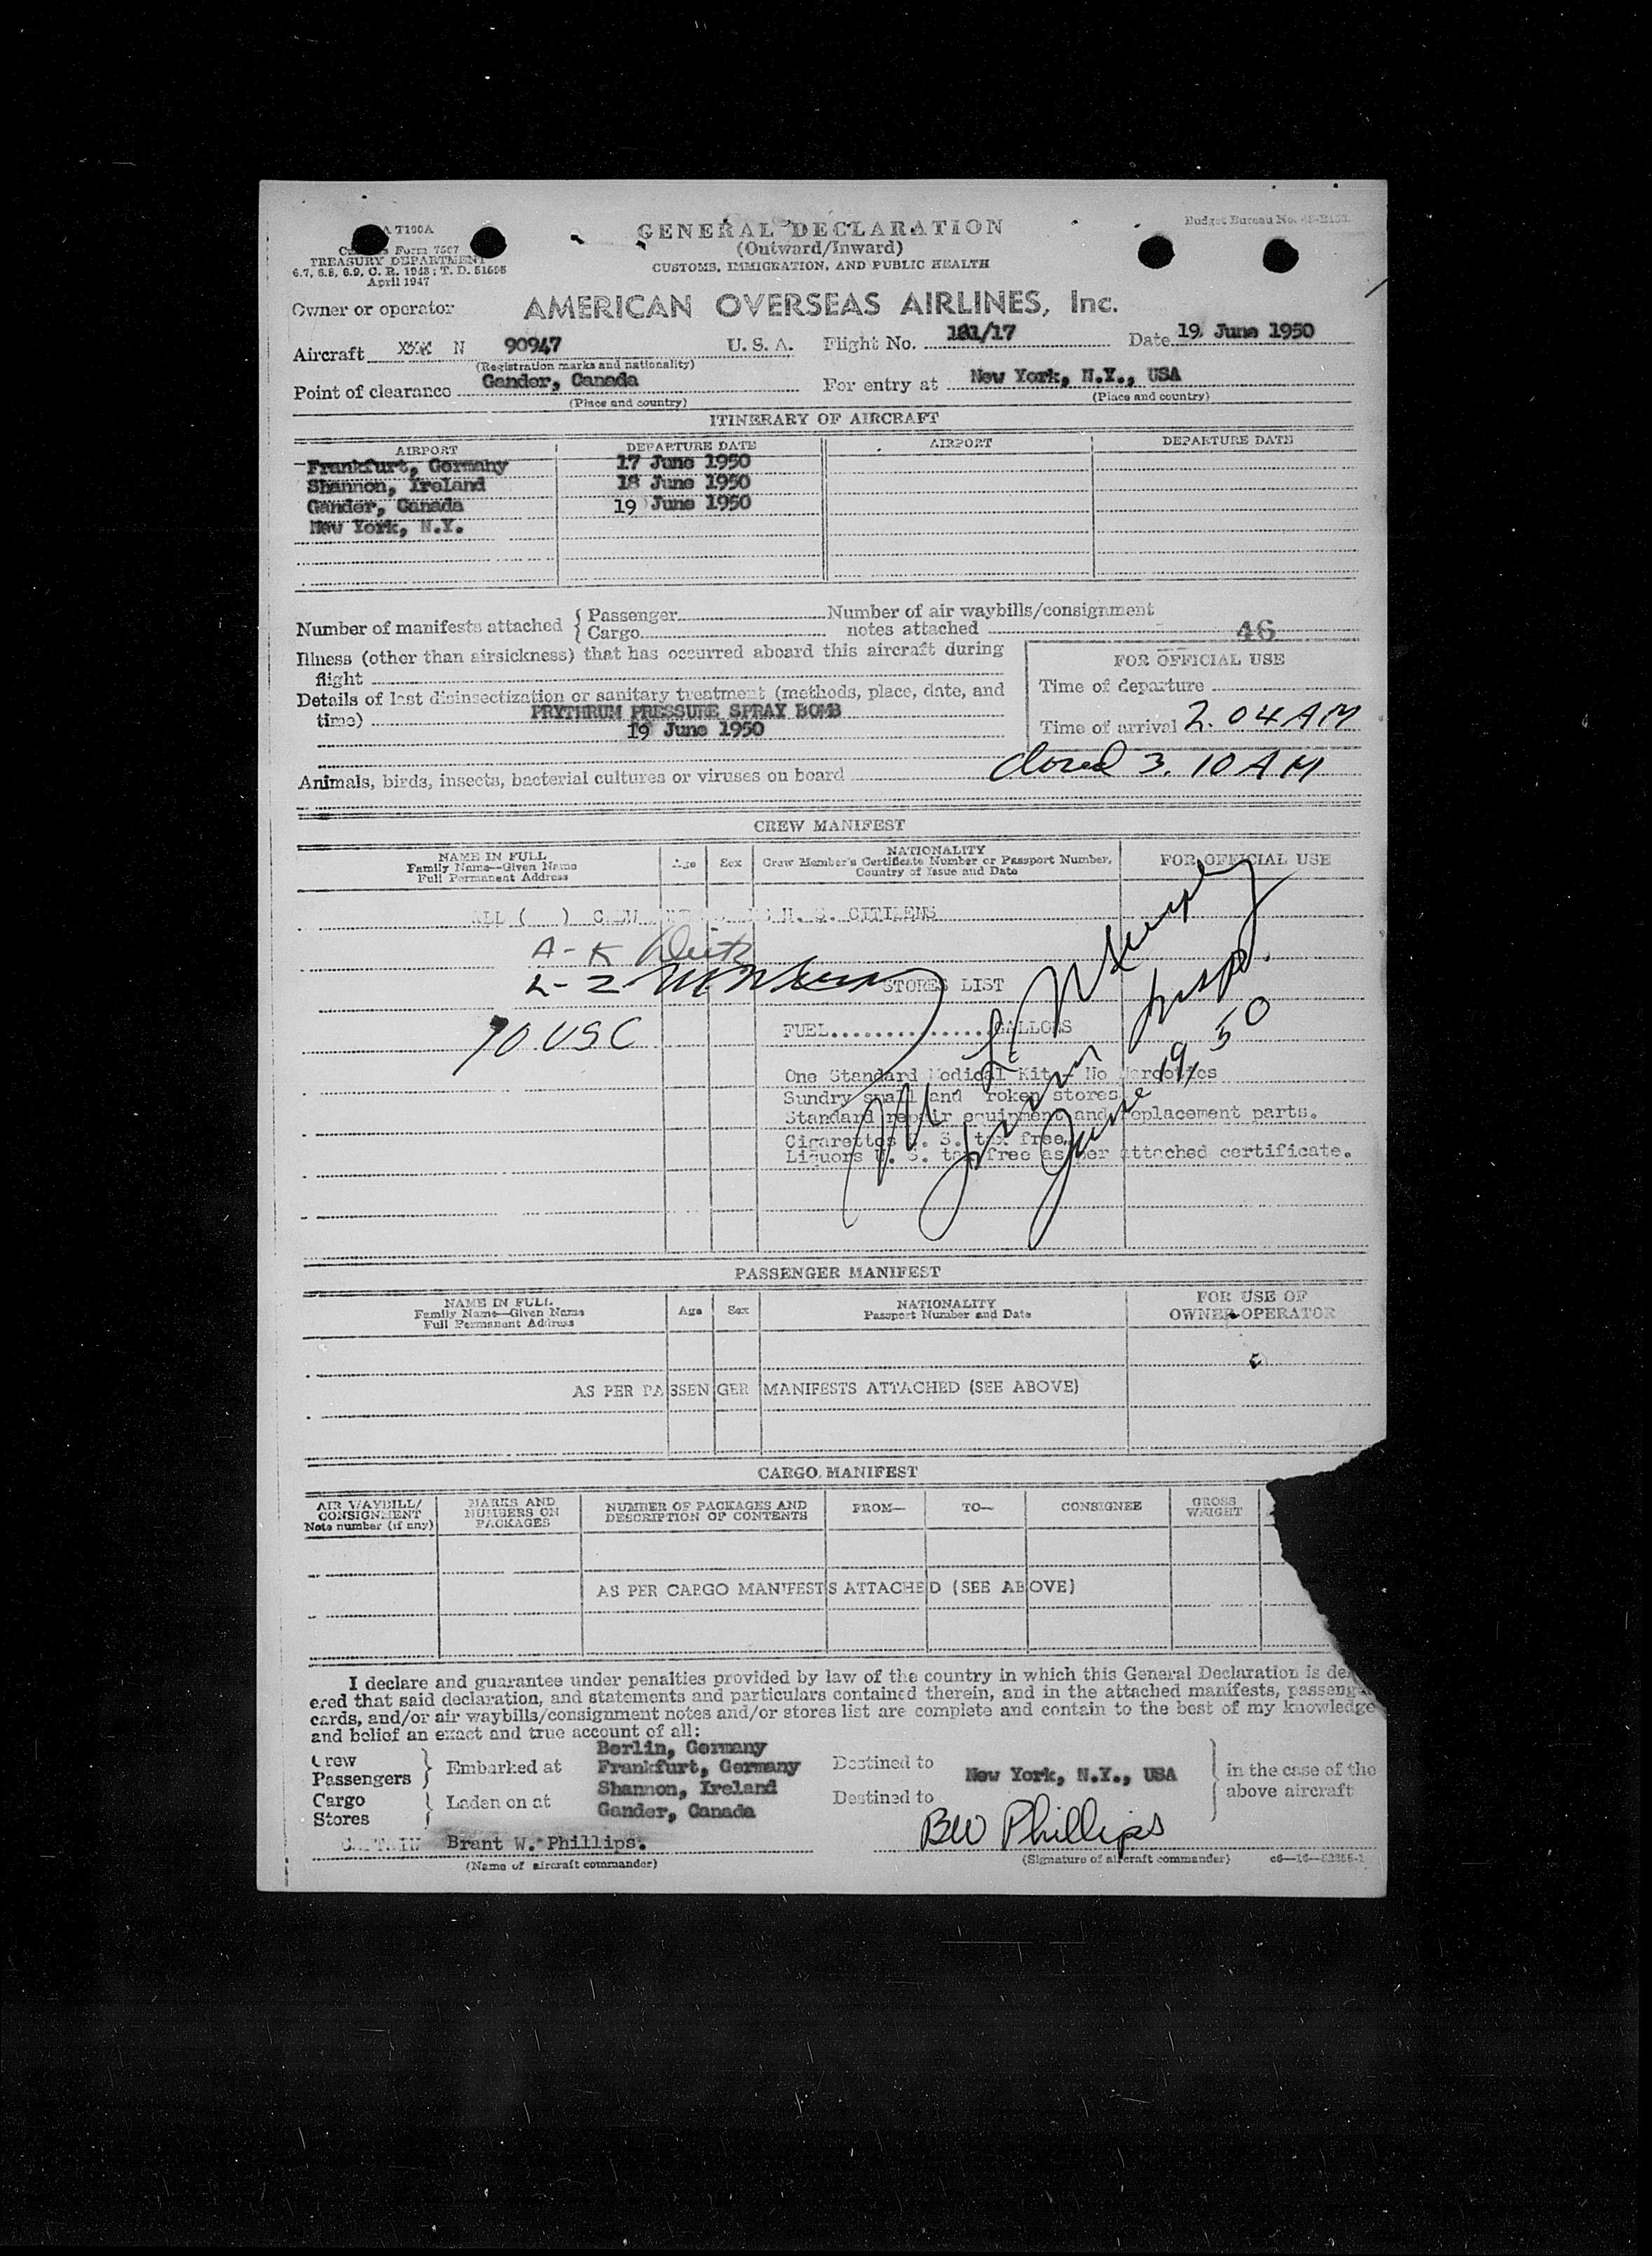 T100A
Form 7507
TREASURY DEPARTMENT
6.7, 6.8, 6.9, C. R. 1943; T. D. 51595
April 1947
GENERAL DECLARATION
(Outward/Inward)
CUSTOMS, IMMIGRATION, AND PUBLIC HEALTH
Budget Bureau No.
Owner or operator AMERICAN OVERSEAS AIRLINES, Inc.
Aircraft XXX N 90947 U. S. A. Flight No. 101/17 Date 19 June 1950
(Registration marks and nationality)
Point of clearance Gander, Canada For entry at New York, N.Y., USA
(Place and country) (Place and country)
ITINERARY OF AIRCRAFT
AIRPORT DEPARTURE DATE AIRPORT DEPARTURE DATE
Frankfurt, Germany 17 June 1950
Shannon, Ireland 18 June 1950
Gander, Canada 19 June 1950
New York, N.Y.
Number of manifests attached { Passenger
{ Cargo
Number of air waybills/consignment
notes attached 46
Illness (other than airsickness) that has occurred aboard this aircraft during
flight
Details of last disinsectization or sanitary treatment (methods, place, date, and
time) PRYTHRUM PRESSURE SPRAY BOMB
19 June 1950
FOR OFFICIAL USE
Time of departure
Time of arrival 2.04 AM
Closed 3.10 AM
Animals, birds, insects, bacterial cultures or viruses on board
CREW MANIFEST
NAME IN FULL
Family Name—Given Name
Full Permanent Address
Age Sex
NATIONALITY
Crew Member's Certificate Number or Passport Number,
Country of Issue and Date
FOR OFFICIAL USE
ALL ( ) U. S. CITIZENS
A - K
L - Z
70 USC
STORES LIST
FUEL...............GALLONS
One Standard Medical Kit - No Narcotics
Sundry small and broken stores
Standard repair equipment and replacement parts.
Cigarettes U. S. tax free,
Liquors U. S. tax free as per attached certificate.
June 19/50
PASSENGER MANIFEST
NAME IN FULL
Family Name—Given Name
Full Permanent Address
Age Sex
NATIONALITY
Passport Number and Date
FOR USE OF
OWNER-OPERATOR
AS PER PASSENGER MANIFESTS ATTACHED (SEE ABOVE)
CARGO MANIFEST
AIR WAYBILL/
CONSIGNMENT
Note number (if any)
MARKS AND
NUMBERS ON
PACKAGES
NUMBER OF PACKAGES AND
DESCRIPTION OF CONTENTS
FROM— TO— CONSIGNEE
GROSS
WEIGHT
AS PER CARGO MANIFESTS ATTACHED (SEE ABOVE)
I declare and guarantee under penalties provided by law of the country in which this General Declaration is
ered that said declaration, and statements and particulars contained therein, and in the attached manifests,
cards, and/or air waybills/consignment notes and/or stores list are complete and contain to the best of my knowledge
and belief an exact and true account of all:
Crew
Passengers } Embarked at
Cargo
Stores } Laden on at
Berlin, Germany
Frankfurt, Germany
Shannon, Ireland
Gander, Canada
Destined to
Destined to
New York, N.Y., USA
in the case of the
above aircraft
CAPTAIN Brant W. Phillips.
(Name of aircraft commander)
BW Phillips
(Signature of aircraft commander)